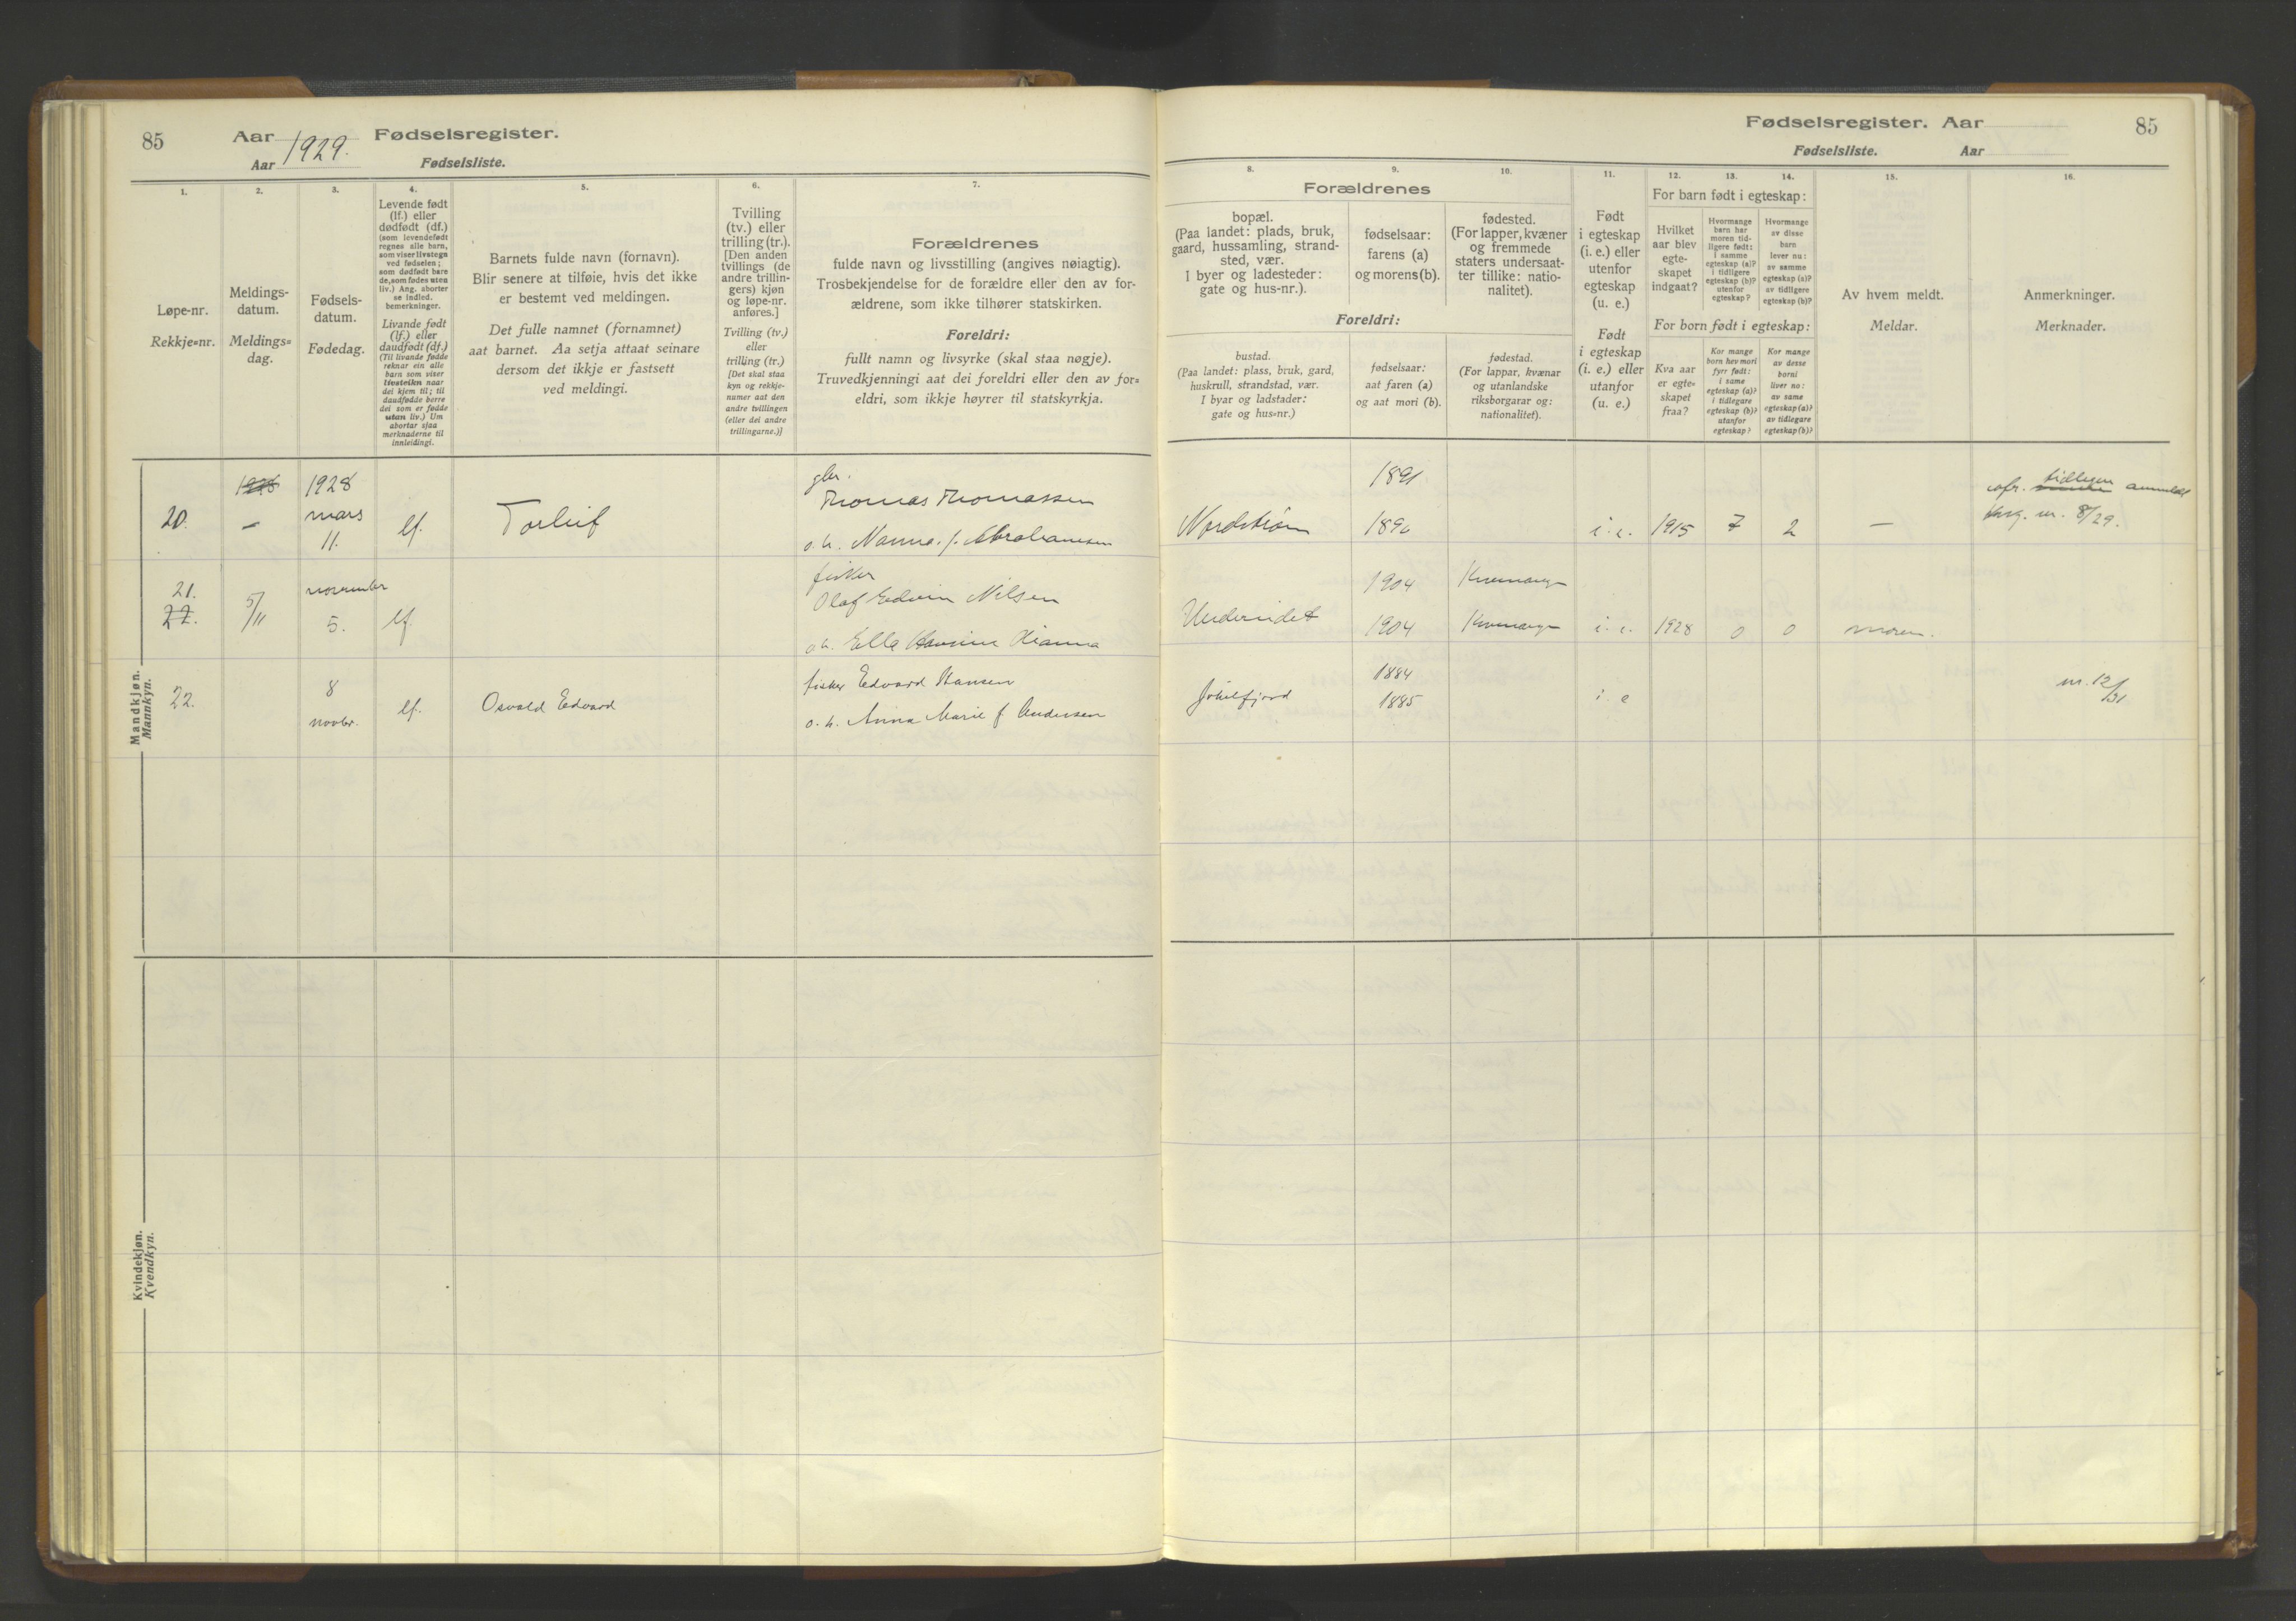 85
Aar 1929. Fødselsregister.
Aar
Fødselsliste.
1.
2.
3.
4.
5.
6.
7.
Løpe-nr.
Rekkje=nr.
Meldings-
datum.
Meldings=
dag.
Fødsels-
datum.
Fødedag.
Levende født
(lf.) eller
dødfødt (df.)
(som levendefødt
regnes alle barn,
som viser livstegn
ved fødselen;
som dødfødt bare
de, som fødes uten
liv.) Ang. aborter
se indled.
bemerkninger.
Livande født
(lf.) eller
daudfødt (df.)
(Til livande fødde
reknar ein alle
barn som viser
livsteikn naar
dei kjem til; til
daudfødde berre
dei som er fødde
utan liv.) Um
abortar sjaa
merknaderne til
innleidingi.
Barnets fulde navn (fornavn).
Blir senere at tilføie, hvis det ikke
er bestemt ved meldingen.
Det fulle namnet (fornamnet)
aat barnet. Aa setja attaat seinare
dersom det ikkje er fastsett
ved meldingi.
Tvilling
(tv.) eller
trilling (tr.).
[Den anden
tvillings (de
andre trillin-
gers) kjøn
og løpe-nr.
anføres.]
Tvilling (tv.)
eller
trilling (tr.)
[Det skal staa
kyn og rekkje-
numer aat den
andre tvillingen
(eller dei andre
trillingarne.)]
Forældrenes
fulde navn og livsstilling (angives nøiagtig).
Trosbekjendelse for de forældre eller den av for-
ældrene, som ikke tilhører statskirken.
Foreldri:
fullt namn og livsyrke (skal staa nøgje).
Truvedkjenningi aat dei foreldri eller den av for=
eldri, som ikkje høyrer til statskyrkja.
Mandkjøn.
Mannkyn.
20.
1928
–
1928
mars
11.
lf.
Torleif
gbr.
Thomas Thomassen
o. h. Nanna f. Abrahamsen
21.
22.
5/11
november
5.
lf.
fisker
Olaf Edvin Nilsen
o. h. Ella
22.
8
novbr.
lf.
Osvald Edvard
fisker Edvard Hansen
o. h. Anna Marie f. Andersen
Kvindekjøn.
Kvendkyn.
Fødselsregister. Aar
85
Fødselsliste. Aar
8.
9.
10.
11.
12.
13.
14.
15.
16.
Forældrenes
bopæl.
(Paa landet: plads, bruk,
gaard, hussamling, strand-
sted, vær.
I byer og ladesteder:
gate og hus-nr.).
fødselsaar:
farens (a)
og morens (b).
fødested.
(For lapper, kvæner
og fremmede
staters undersaat-
ter tillike: natio-
nalitet).
Foreldri:
bustad.
(Paa landet: plass, bruk, gard,
huskrull, strandstad, vær.
I byar og ladstader:
gate og hus=nr.)
fødselsaar:
aat faren (a)
og aat mori (b).
fødestad.
(For lappar, kvænar
og utanlandske
riksborgarar og:
nationalitet).
Født
i egteskap
(i. e.) eller
utenfor
egteskap
(u. e.)
Født
i egteskap
(i. e.) eller
utanfor
(u. e.)
For barn født i egteskap:
Hvilket
aar blev
egte-
skapet
indgaat?
Hvormange
barn har
moren tid-
ligere født:
i samme
egteskap (a)?
i tidligere
egteskap (b)?
utenfor
egteskap?
Hvormange
av disse
barn
lever nu:
av samme
egteskap (a)?
av tidligere
egteskap (b)?
For born født i egteskap:
Kva aar
er egte=
skapet
fraa?
Kor mange
born hev mori
fyrr født:
i same
egteskap (a)?
i tidlegare
egteskap (b)?
utanfor
egteskap?
Kor mange
av desse
borni
liver no:
av same
egteskap (a)?
av tidlegare
egteskap (b)?
Av hvem meldt.
Meldar.
Anmerkninger.
Merknader.
1891
Nordstrøm
1896
i. e.
1915
7
2
–
cfr. tidligere anmeldt
nr. 8/29.
1904
Kvænangen
Undereidet
1904
Kvænangen
i. e.
1928
0
0
moren.
Jøkelfjord
1884
1885
i. e
nr. 12/31